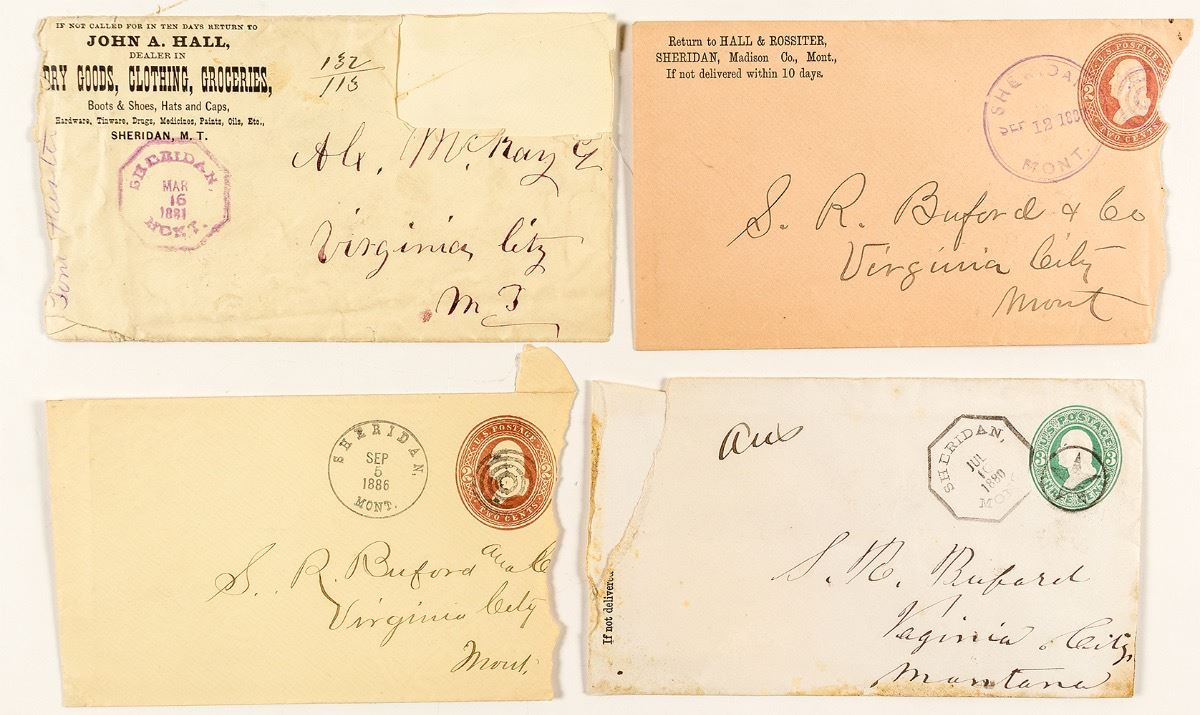 IF NOT CALLED FOR IN TEN DAYS RETURN TO
JOHN A. HALL,
DEALER IN
DRY GOODS, CLOTHING, GROCERIES,
Boots & Shoes, Hats and Caps,
Hardware, Tinware, Drugs, Medicines, Paints, Oils, Etc.,
SHERIDAN, M. T.
132
113
SHERIDAN,
MAR
16
1881
MONT.
Alx. McKay
Virginia City
M T
Return to HALL & ROSSITER,
SHERIDAN, Madison Co., Mont.,
If not delivered within 10 days.
SHERIDAN
SEP 12 188
MONT.
U.S. POSTAGE
2
TWO CENTS
S. R. Buford & Co
Virginia City
Mont
SHERIDAN,
SEP
5
1886
MONT.
U.S. POSTAGE
2
TWO CENTS
S. R. Buford and Co
Virginia City
Mont.
If not delivered
Ans
SHERIDAN,
JUL
1880
MONT
U.S. POSTAGE
3 3
THREE CENTS
S. R. Buford
Vaginia City,
Montana